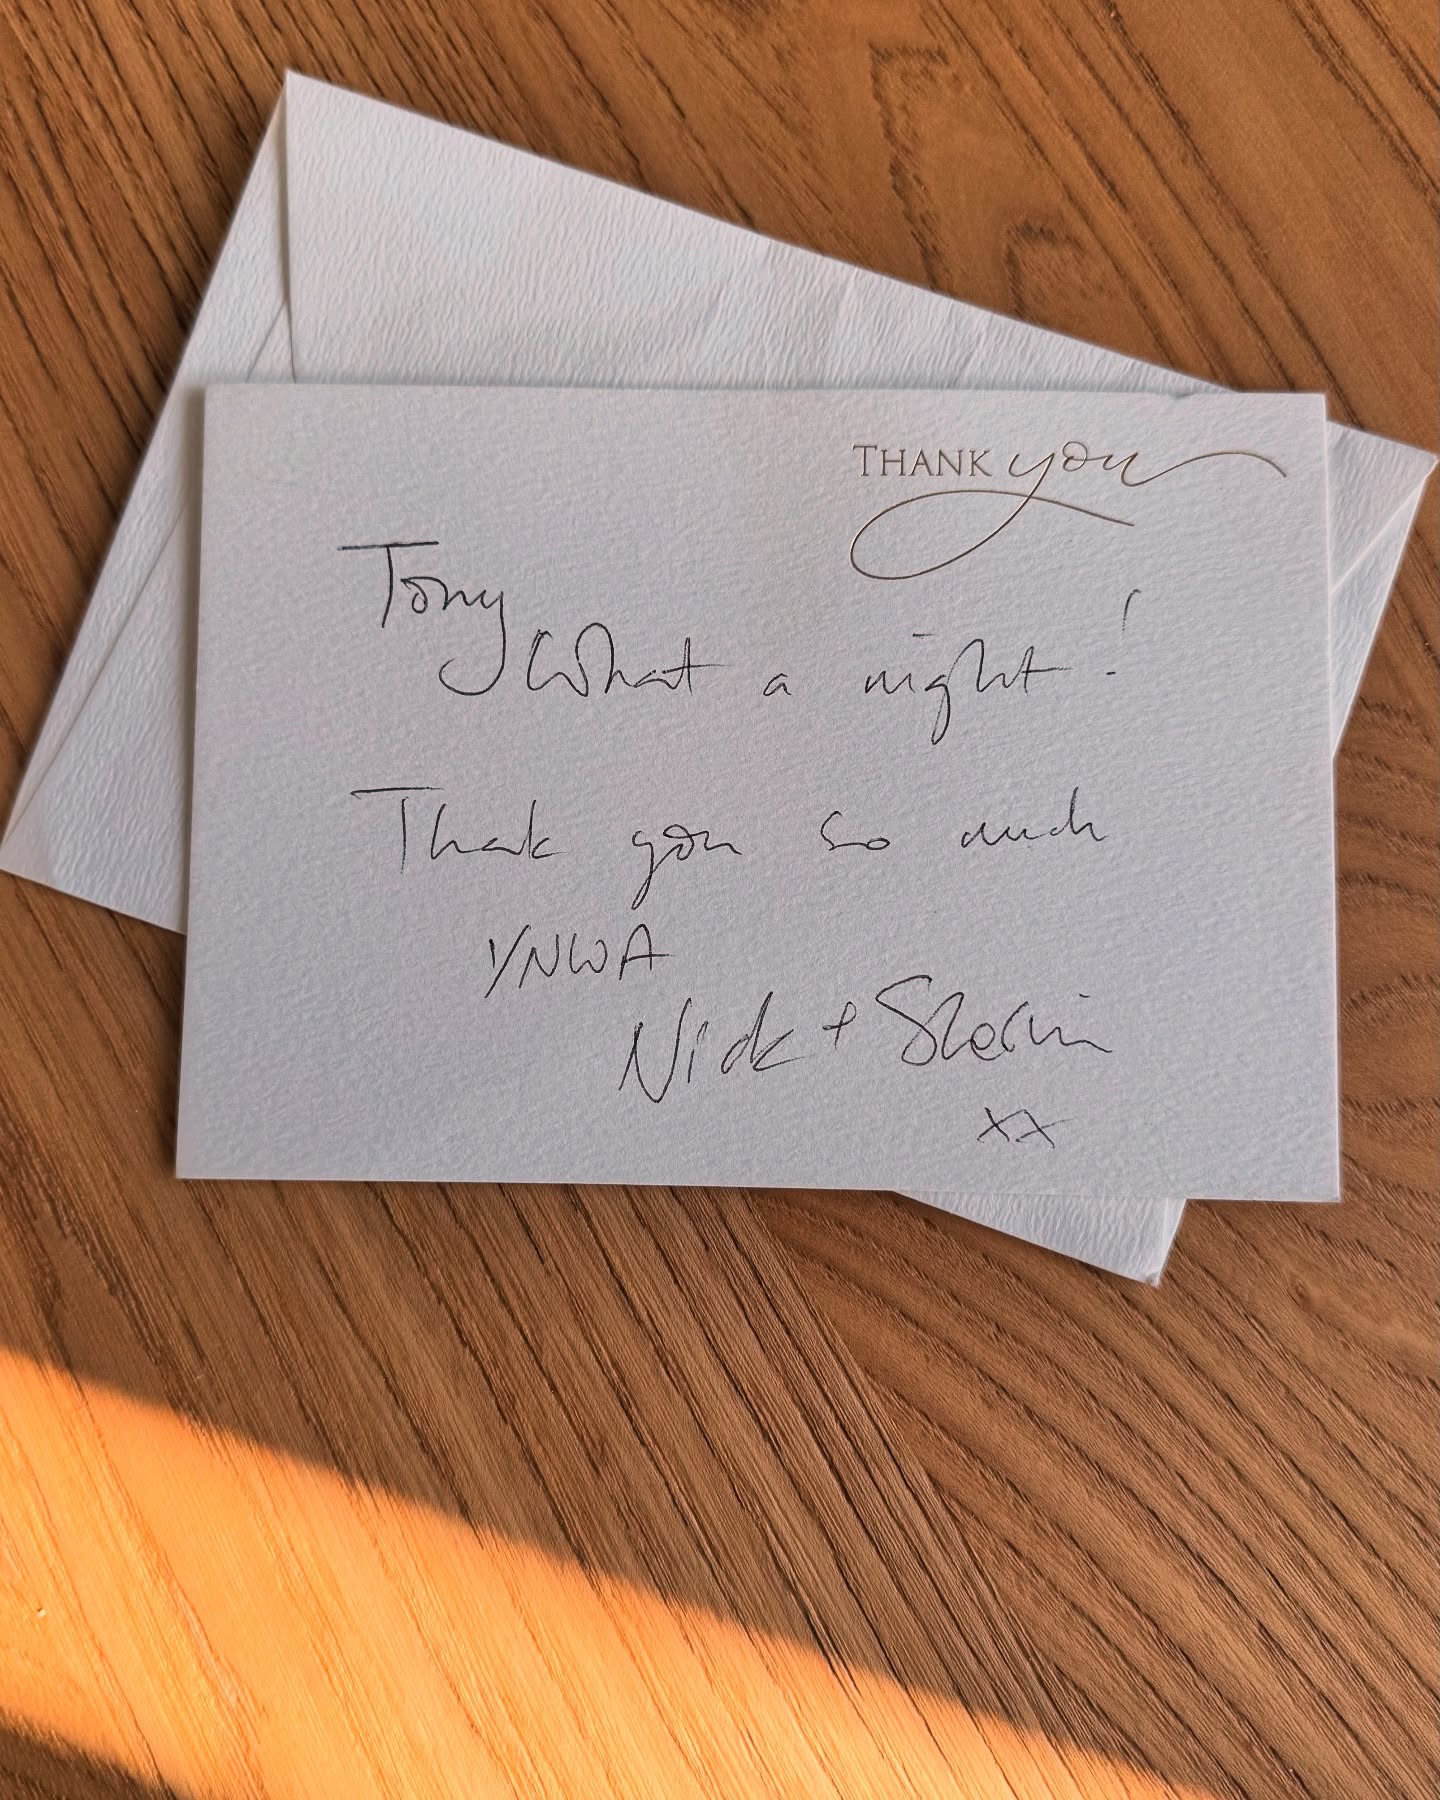 THANK you
Tony
What a night!
Thank you so much
YNWA
Nick + 
xx